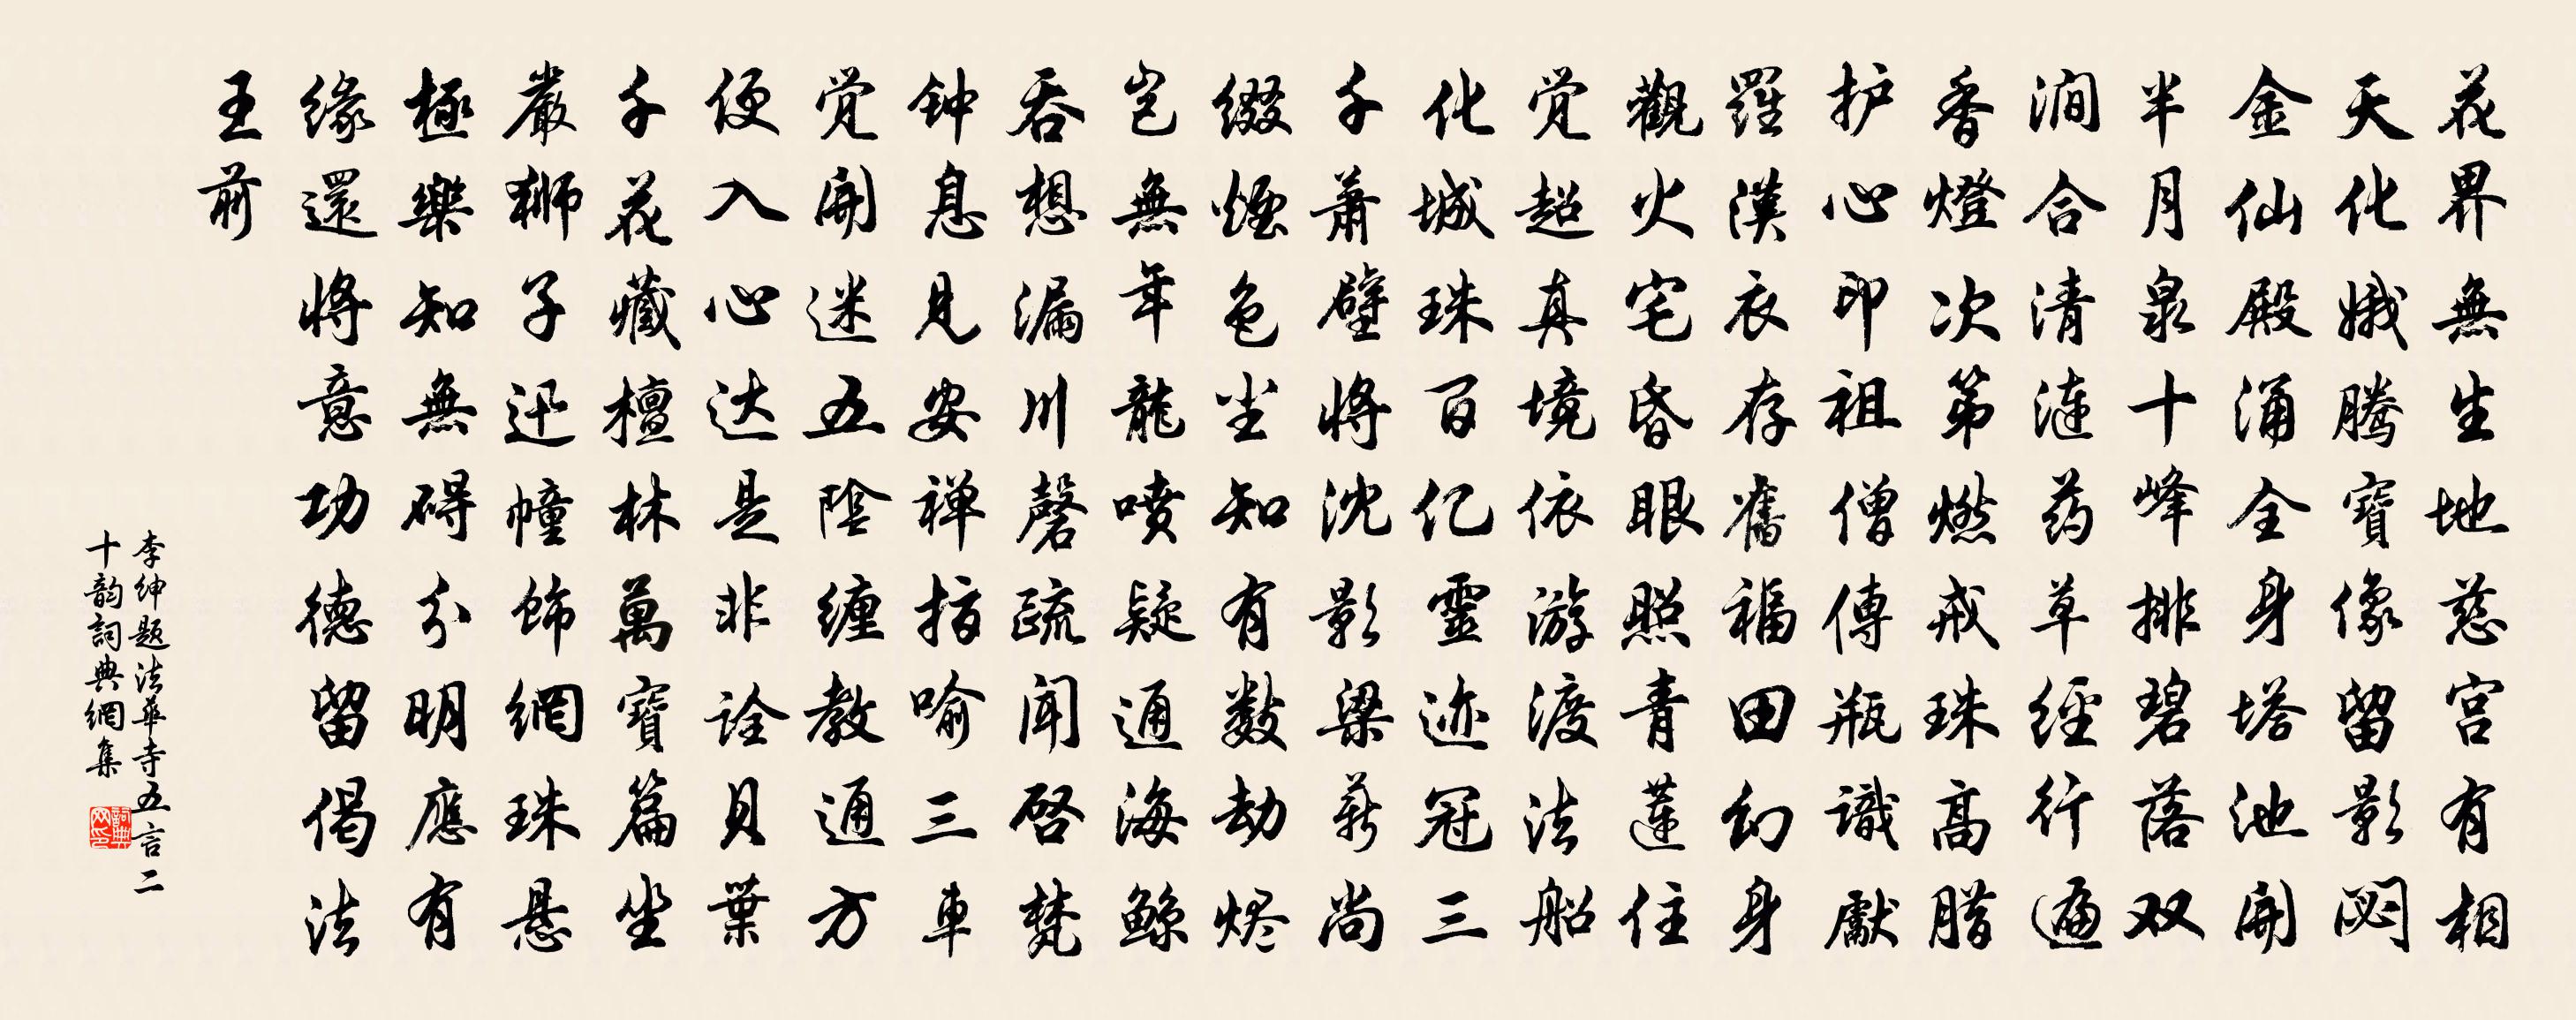 花界無生地慈宫有相
天化娥腾寶像留影閟
金仙殿涌全身塔池開
半月泉十峰排碧落双
澗合清涟药草經行遍
香燈次第燃戒珠高腊
护心印祖僧傳瓶識獻
羅漢衣存舊福田幻身
觀火宅昏眼照青蓮住
觉超真境依游渡法船
化城珠百亿靈迹冠三
千蕭壁将沈影梁薪尚
缀煙色尘知有数劫烬
岂無年龍喷疑通海鲸
吞想漏川磬疏闻啓梵
钟息見安禅指喻三車
觉開迷五陰缠教通方
便入心达是非詮貝葉
千花藏檀林萬寶篇坐
嚴獅子迅幢飾網珠悬
極樂知無碍分明應有
缘還将意功德留偈法
王前
李绅题法華寺五言二
十韵詞典網集
詞典网印